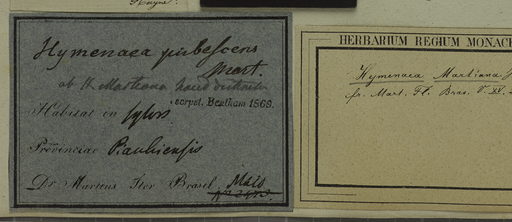 Hymenaea pubescens
Mart.
ab H. Martiana haud
script. Bentham 1869.
Habitat in sylvis
Provinciae Piauhiensis
Dr. Martius Iter Brasil. Majo
HERBARIUM REGIUM MONACE
Hymenaea Martiana
fr. Mart. Fl. Bras. V. XV.